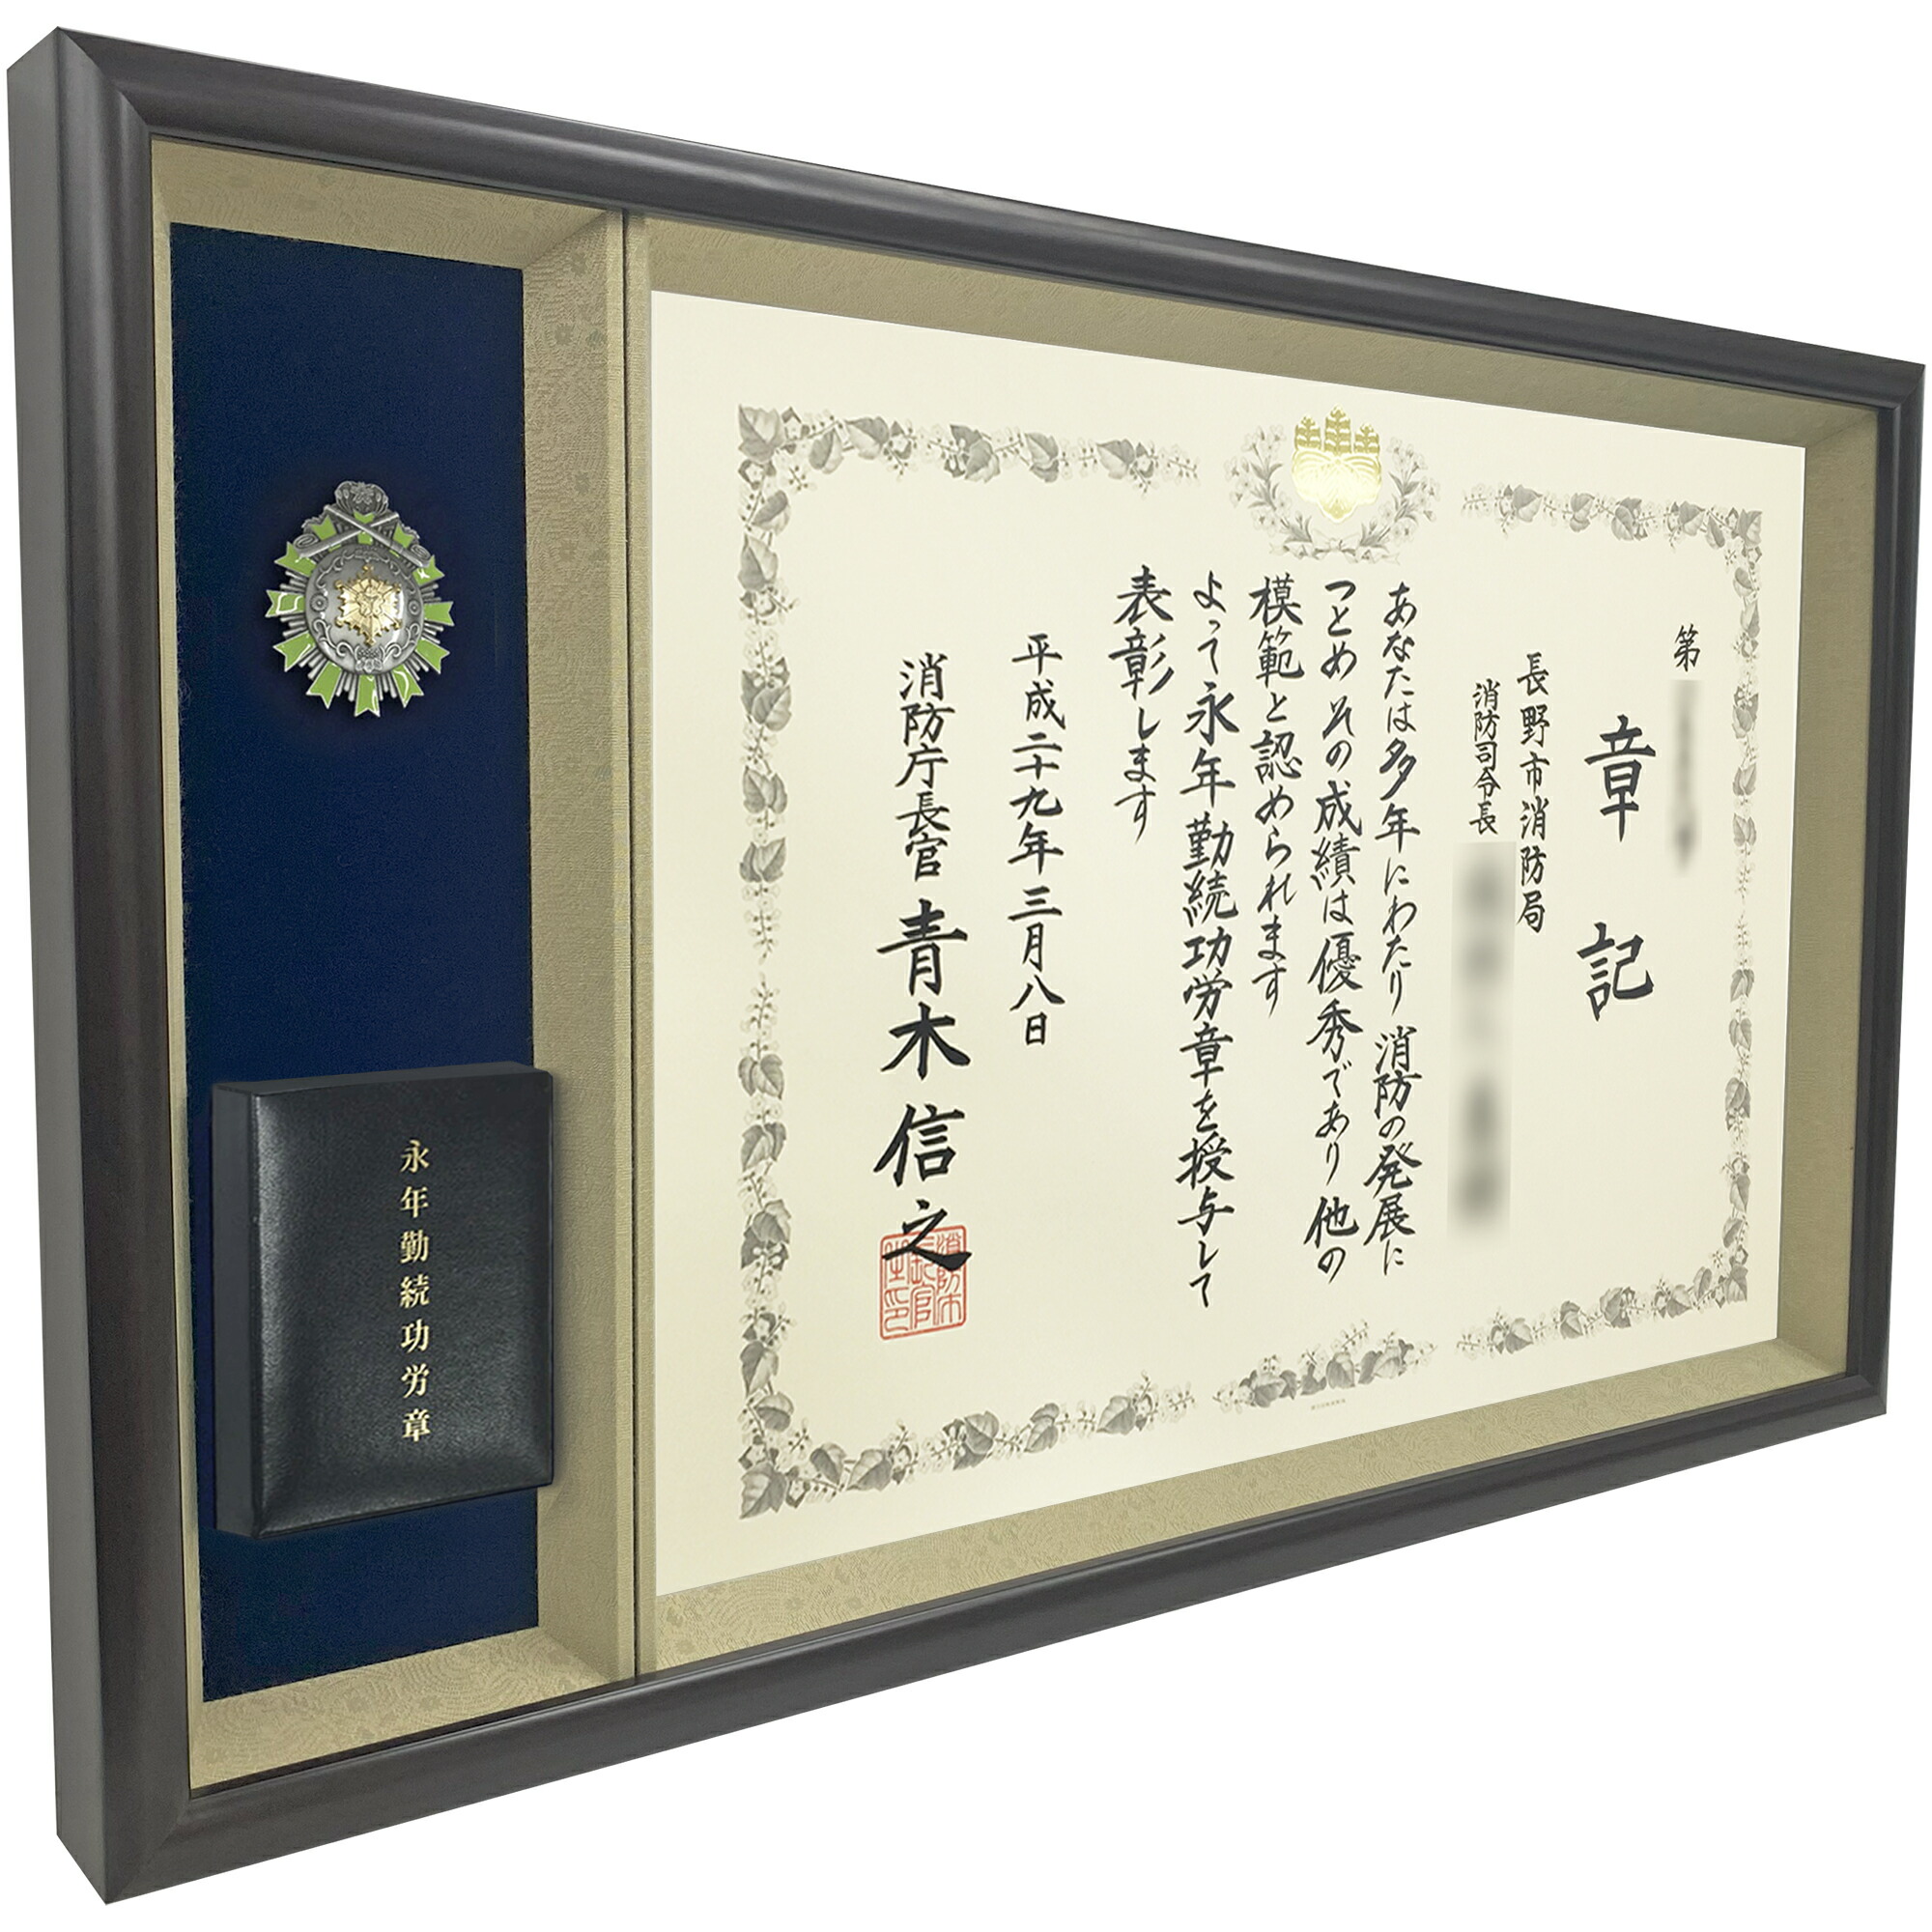 第
章記
長野市消防局
消防司令長
あなたは多年にわたり消防の発展に
つとめその成績は優秀であり他の
模範と認められます
よって永年勤続功労章を授与して
表彰します
平成二十九年三月八日
消防庁長官 青木信之
永年勤続功労章